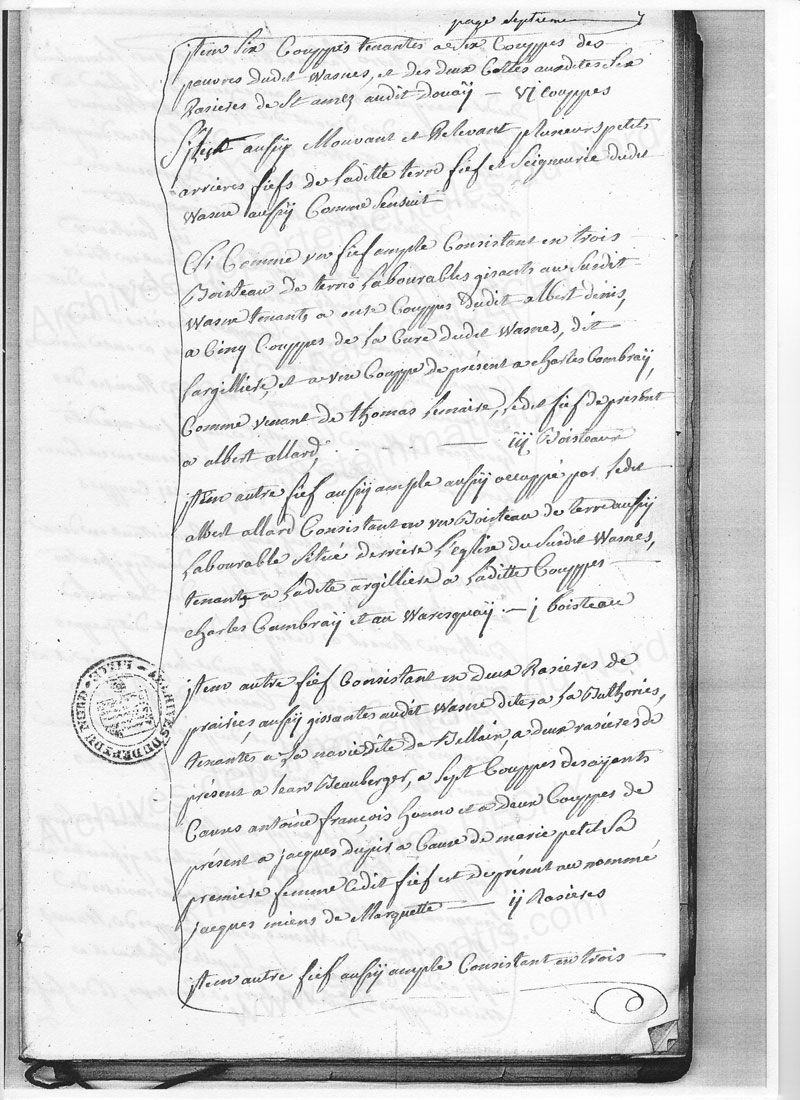 page septieme 7
jtem Six Couppes tenantes a Six Couppes des
pauvres dudit Wasnes, et des deux Cottés auxdites Six
Rasieres de St amez audit Douaÿ — VI Couppes
aussÿ Mouvant et Relevant plusieurs petits
arrieres fiefs de Laditte terre fief et Seigneurie dudit
Wasne aussÿ Comme Sensuit
Csi Comme un fief ample Consistant en trois
Boisteau de terre Labourables gisants au Susdit
Wasne tenants a onze Couppes dudit albert denis,
a Cinq Couppes de La Cure dudit Wasnes, dit
Largilliere, et a une Couppe de présent a charles Cambraÿ,
Comme venant de thomas Lemaire, Ledit fief de présent
a albert allard — iij Boisteaux
jtem autre fief aussÿ ample aussÿ occuppé par Ledit
albert allard Consistant en un Boisteau de terre aussÿ
Labourable Situé derriere L'eglise du Susdit Wasnes,
tenant a Ladite argilliere a Laditte Couppes
charles Cambraÿ et au Waresquaÿ — j boisteau
jtem autre fief Consistant en deux Rasieres de
prairies, aussÿ gissantes audit Wasne dite a La
tenantes a La navie dite de Bellain, a deux rasieres de
présent a Jean Beauberger, a Sept Couppes des aÿants
Causes antoine francois et a deux Couppes de
présent a jacques dupir a Cause de marie petit Sa
premiere femme Ledit fief est de présent au nommé
jacques miens de Marquette — ij Rasieres
jtem autre fief aussÿ ample Consistant en trois
ARCHIVES DU DEPT DU NORD